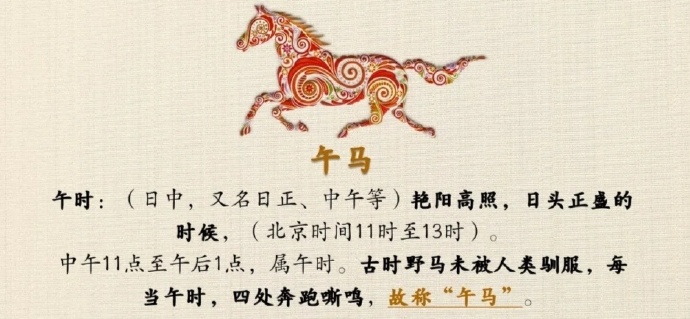 午马
午时：（日中，又名日正、中午等）艳阳高照，日头正盛的
时候，（北京时间11时至13时）。
中午11点至午后1点，属午时。古时野马未被人类驯服，每
当午时，四处奔跑嘶鸣，故称“午马”。